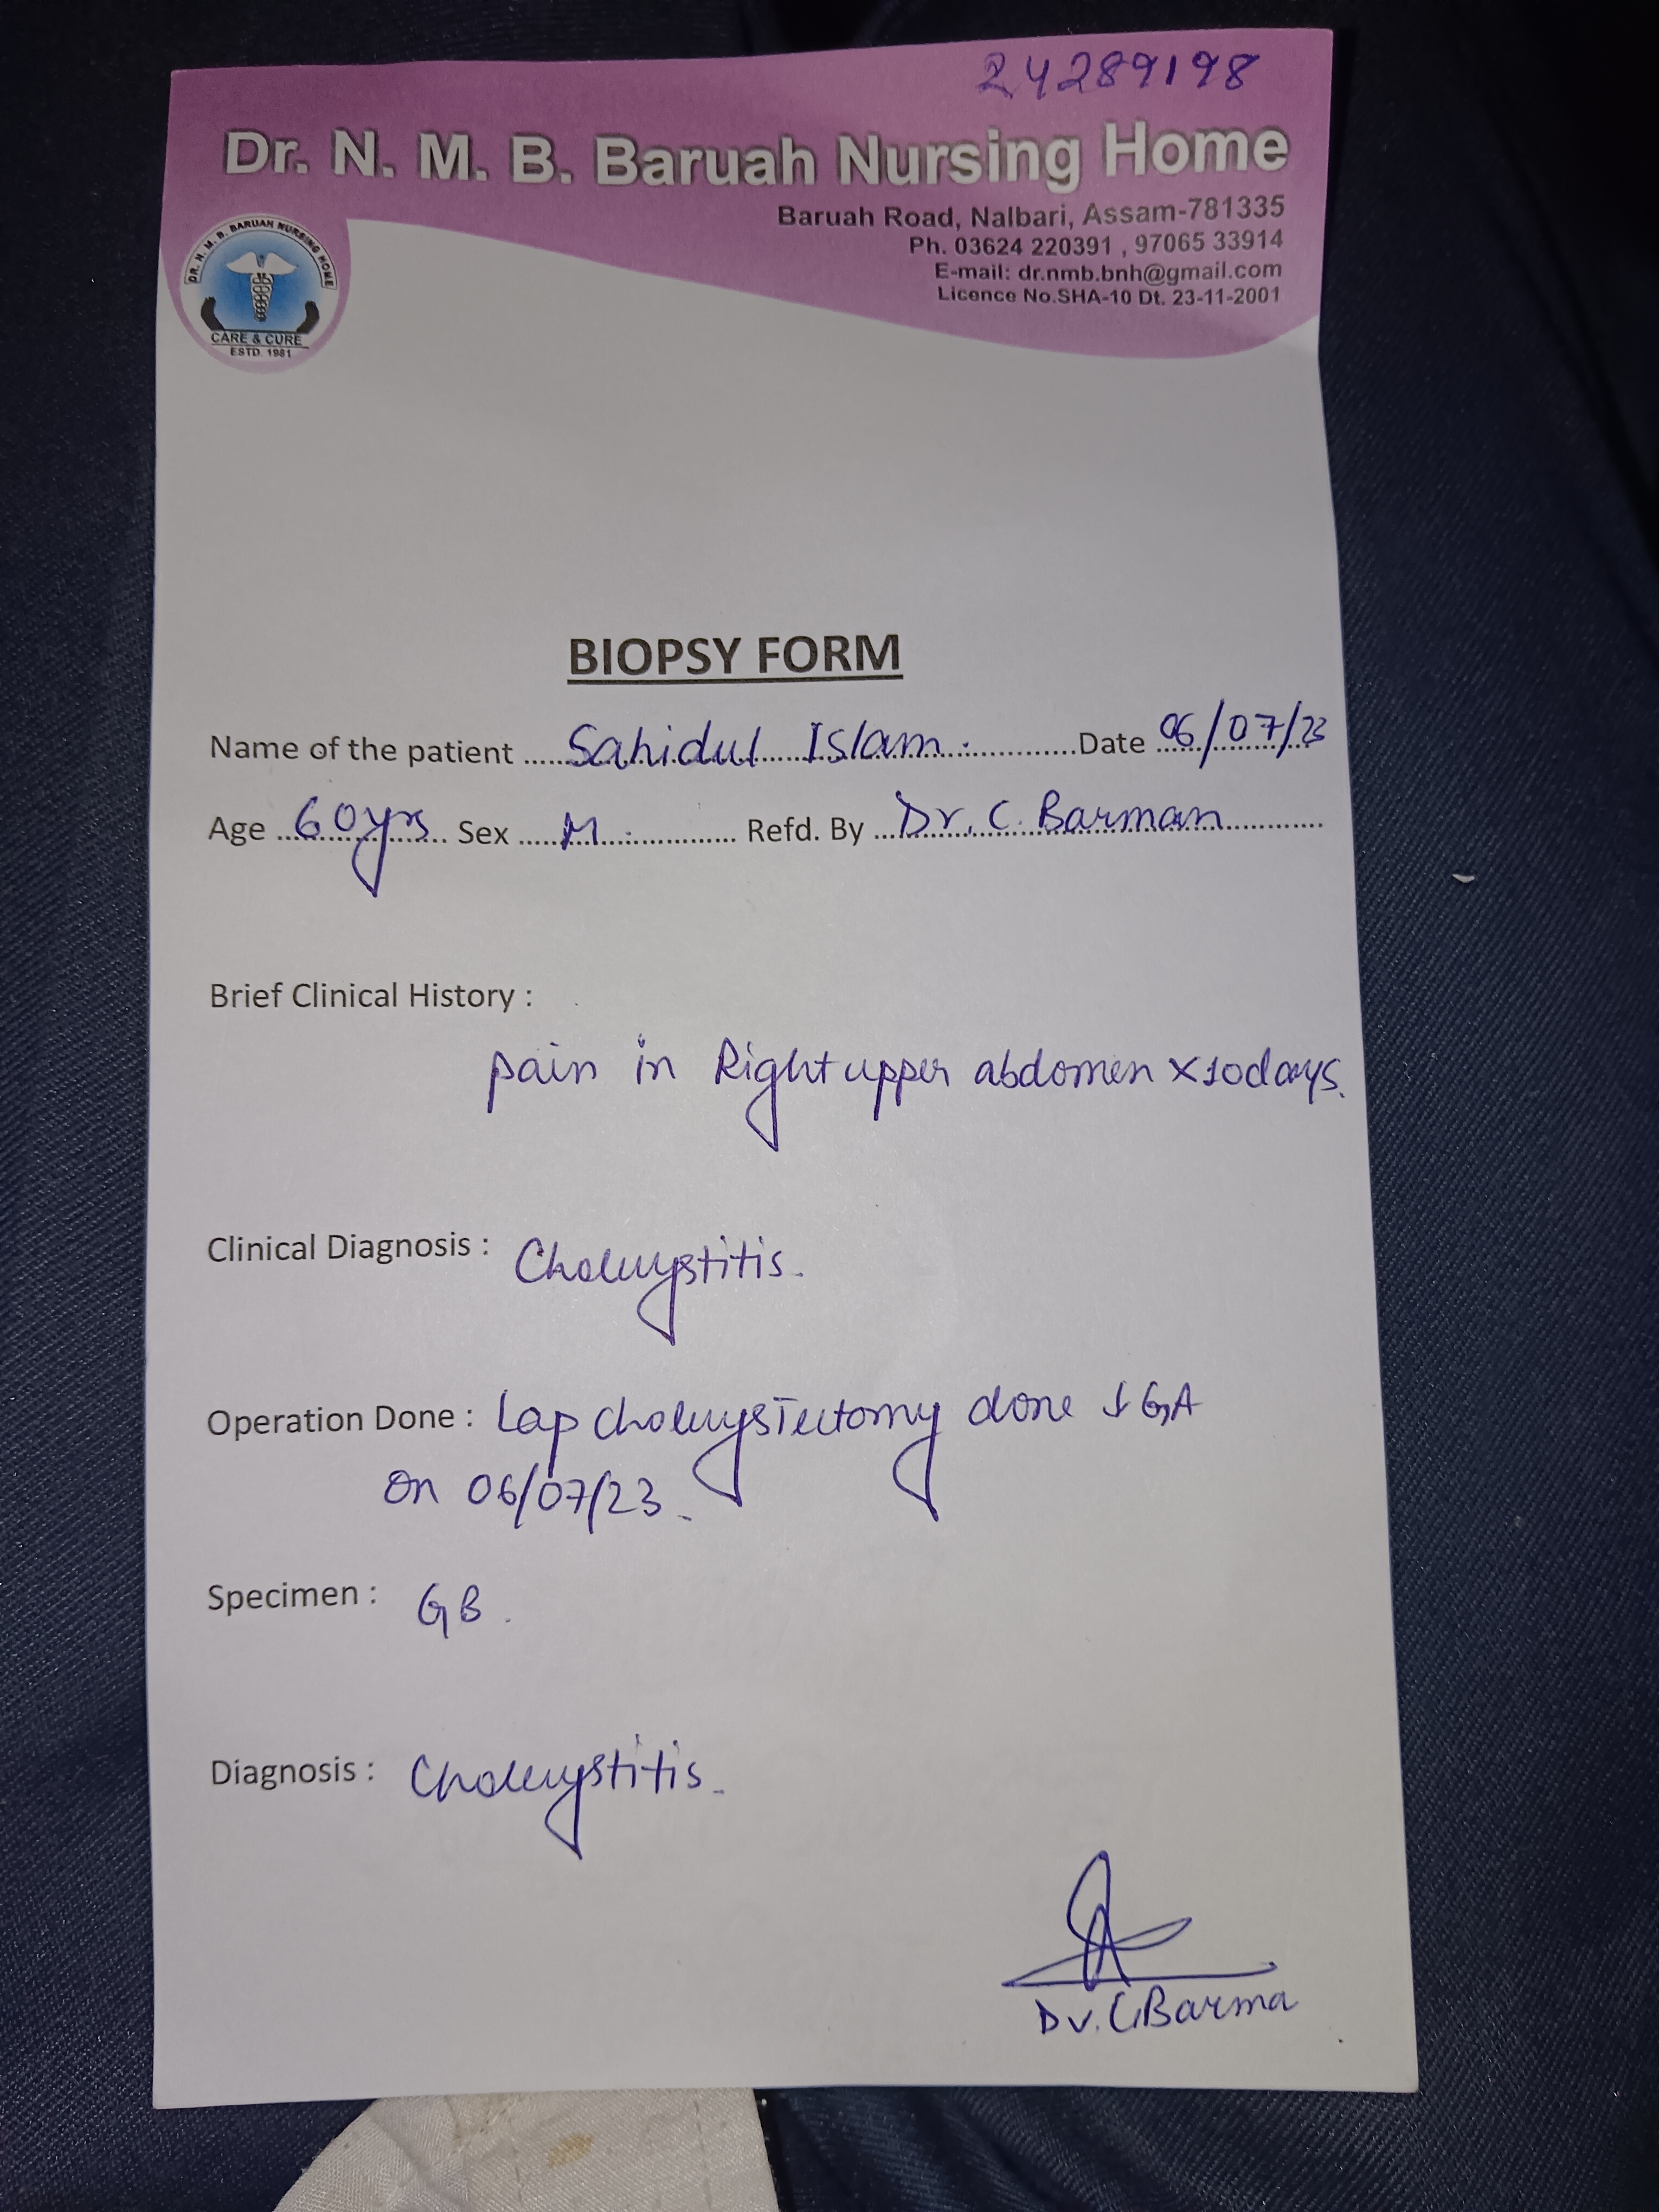 24289198
Dr. N. M. B. Baruah Nursing Home
Baruah Road, Nalbari, Assam-781335
Ph. 03624 220391 , 97065 33914
E-mail: dr.nmb.bnh@gmail.com
Licence No.SHA-10 Dt. 23-11-2001
DR. N. M. B. BARUAH NURSING HOME
CARE & CURE
ESTD. 1981
BIOPSY FORM
Name of the patient Sahidul Islam. Date 06/07/23
Age 60yrs Sex M. Refd. By Dr. C. Barman
Brief Clinical History :
pain in Right upper abdomen x 10days.
Clinical Diagnosis : Cholecystitis.
Operation Done : Lap cholecystectomy done ↓ GA
on 06/07/23.
Specimen : GB.
Diagnosis : Cholecystitis.
Dr. C Barma